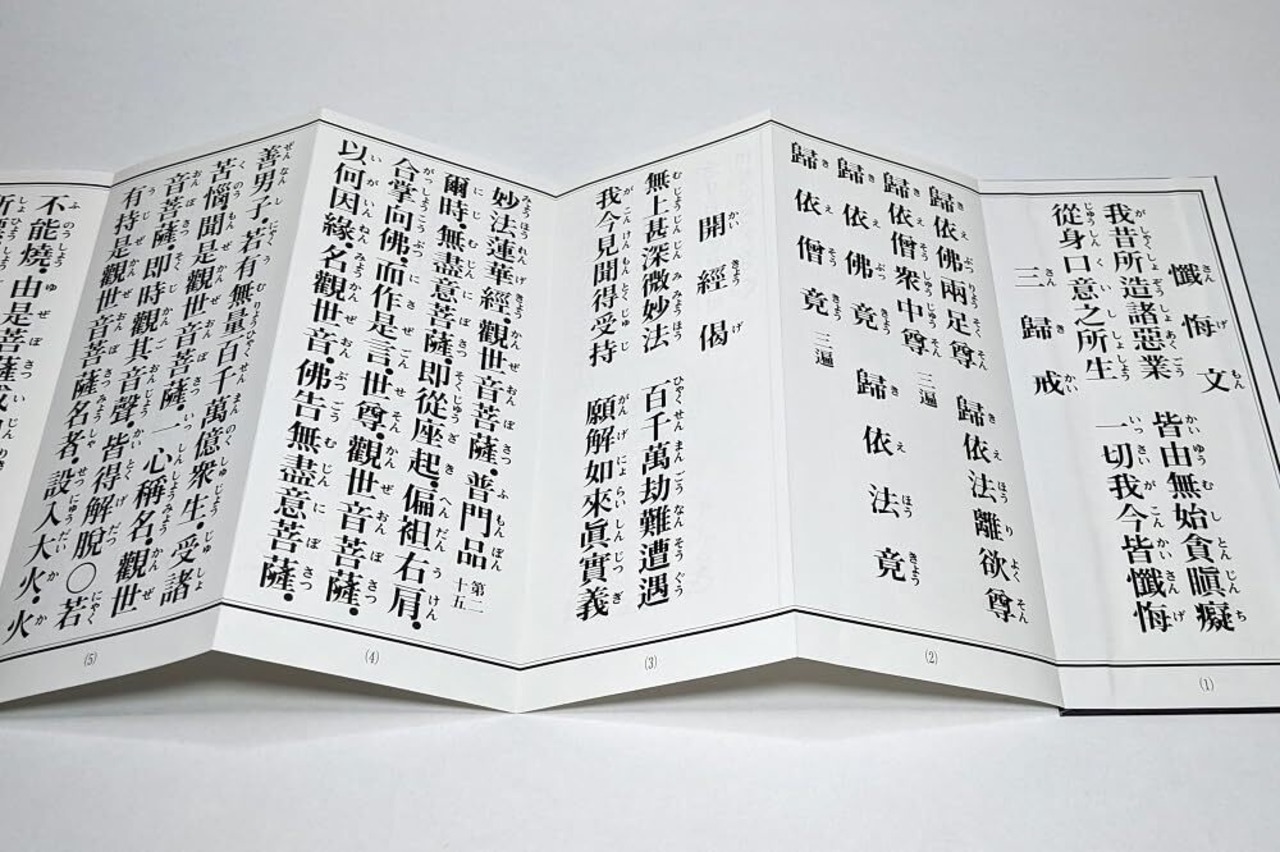 懺悔文
我昔所造諸惡業 皆由無始貪瞋癡
從身口意之所生 一切我今皆懺悔
三歸戒
(1)
歸依佛兩足尊 歸依法離欲尊
歸依僧衆中尊 三遍
歸依佛竟 歸依法竟
歸依僧竟 三遍
(2)
開經偈
無上甚深微妙法 百千萬劫難遭遇
我今見聞得受持 願解如來眞實義
(3)
妙法蓮華經.觀世音菩薩.普門品 第二十五
爾時.無盡意菩薩.卽從座起.偏袒右肩.
合掌向佛.而作是言.世尊.觀世音菩薩.
以何因緣.名觀世音.佛告無盡意菩薩.
(4)
善男子.若有無量百千萬億衆生.受諸
苦惱聞是觀世音菩薩.一心稱名.觀世
音菩薩.卽時觀其音聲.皆得解脫○若
有持是觀世音菩薩名者.設入大火.火
(5)
不能燒.由是菩薩威